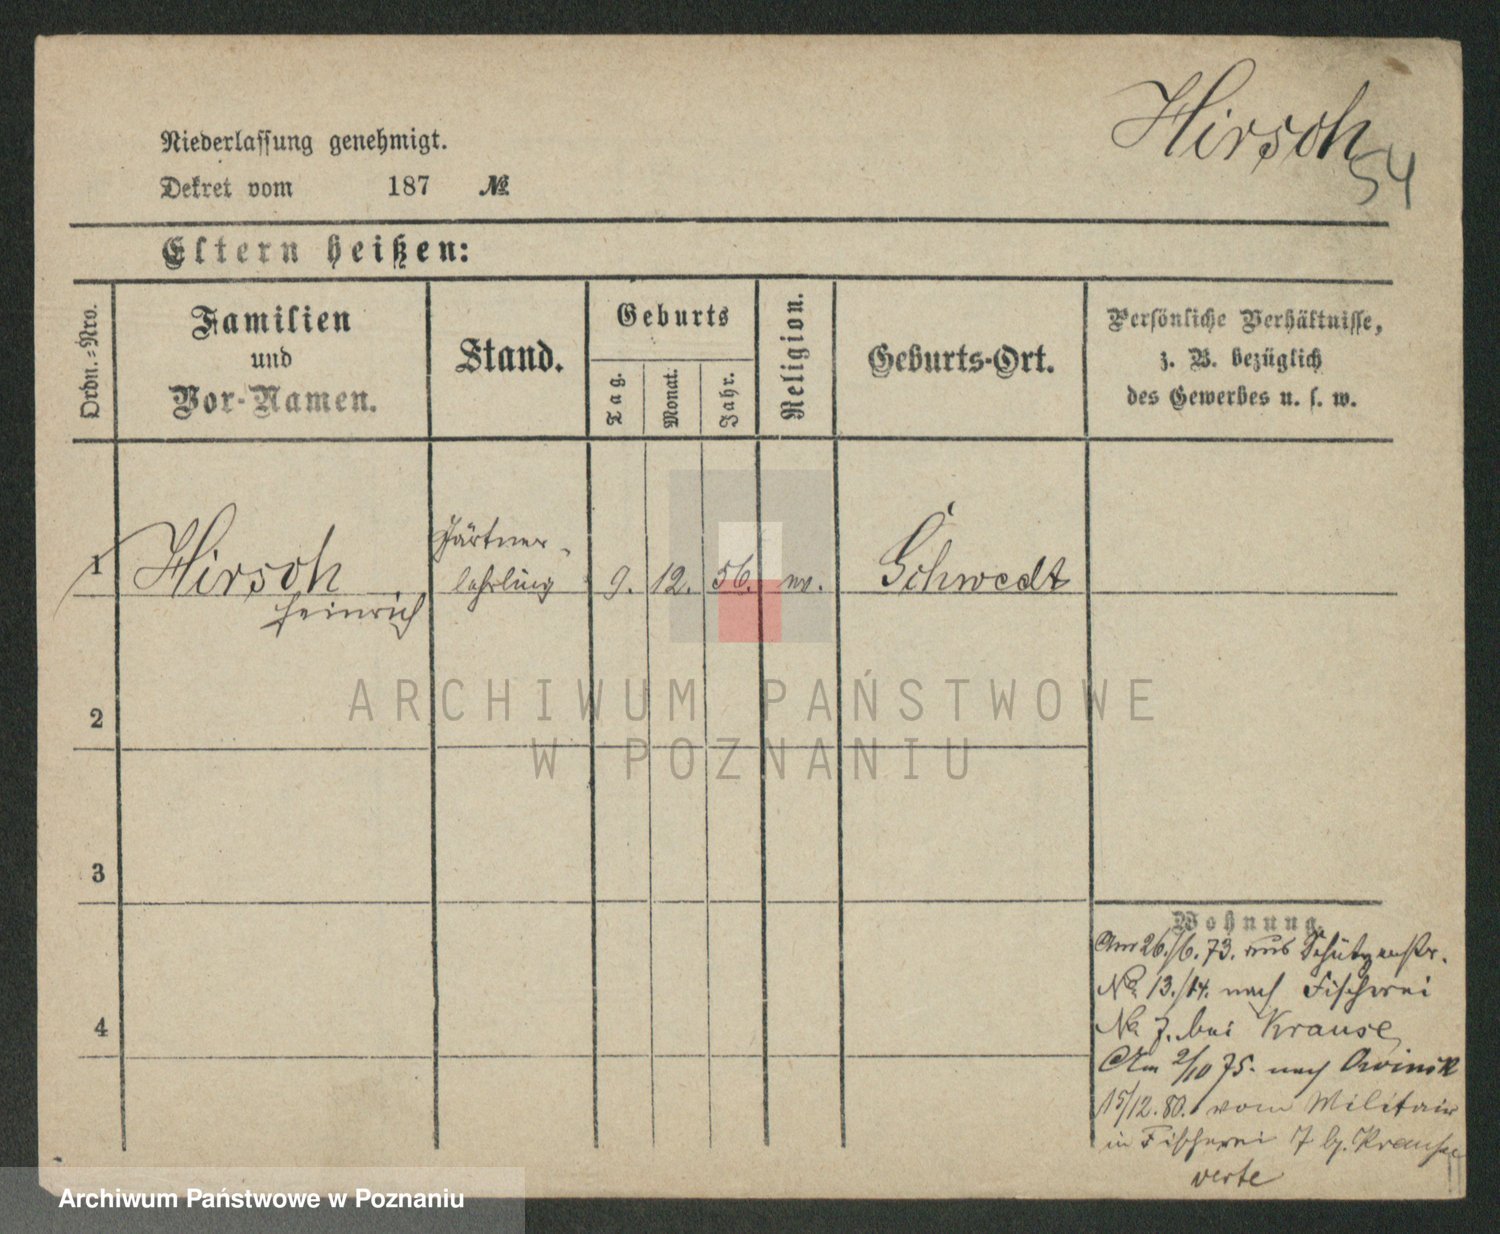 Hirsch
54
Niederlassung genehmigt.
Dekret vom 187 №
Eltern heißen:
Ordn.-Nro.
Familien
und
Vor-Namen.
Stand.
Geburts
Tag.
Monat.
Jahr.
Religion.
Geburts-Ort.
Persönliche Verhältnisse,
z. B. bezüglich
des Gewerbes u. s. w.
1 Hirsch
Heinrich
Gärtner-
lehrling
9. 12. 56. Schwedt
2
3
4
Wohnung.
Am 26./6. 73. aus Schützenstr.
No 13./14. nach Fischerei
No 7. bei Krause
Am 2/10 75. nach Owinsk
15/12. 80. vom Militair
in Fischerei 7 b. Krause
verte
ARCHIWUM PAŃSTWOWE
W POZNANIU
Archiwum Państwowe w Poznaniu